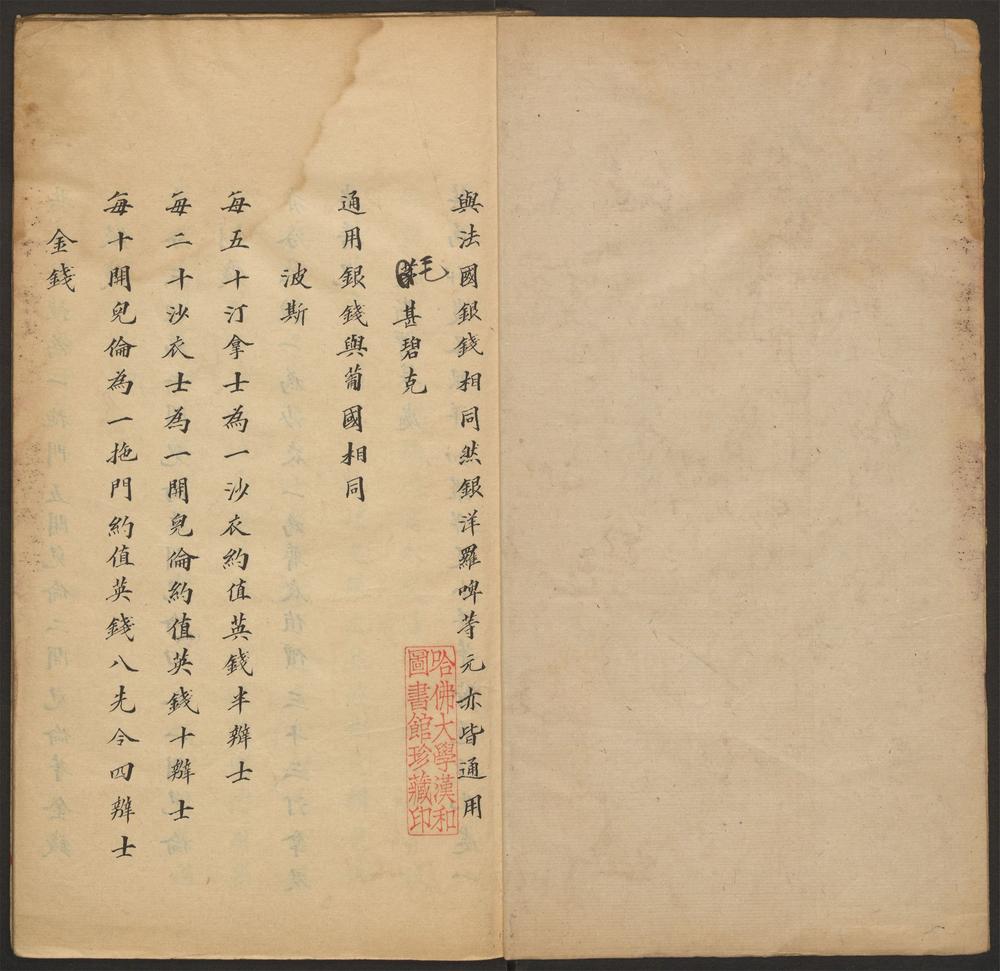 與法國銀錢相同然銀洋羅啤等元亦皆通用
毛甚碧克
通用銀錢與葡國相同
波斯
每五十汀拿士為一沙衣約值英錢半辨士
每二十沙衣士為一開兒倫約值英錢十辨士
每十開兒倫為一拖門約值英錢八先令四辨士
金錢
哈佛大學漢和
圖書館珍藏印